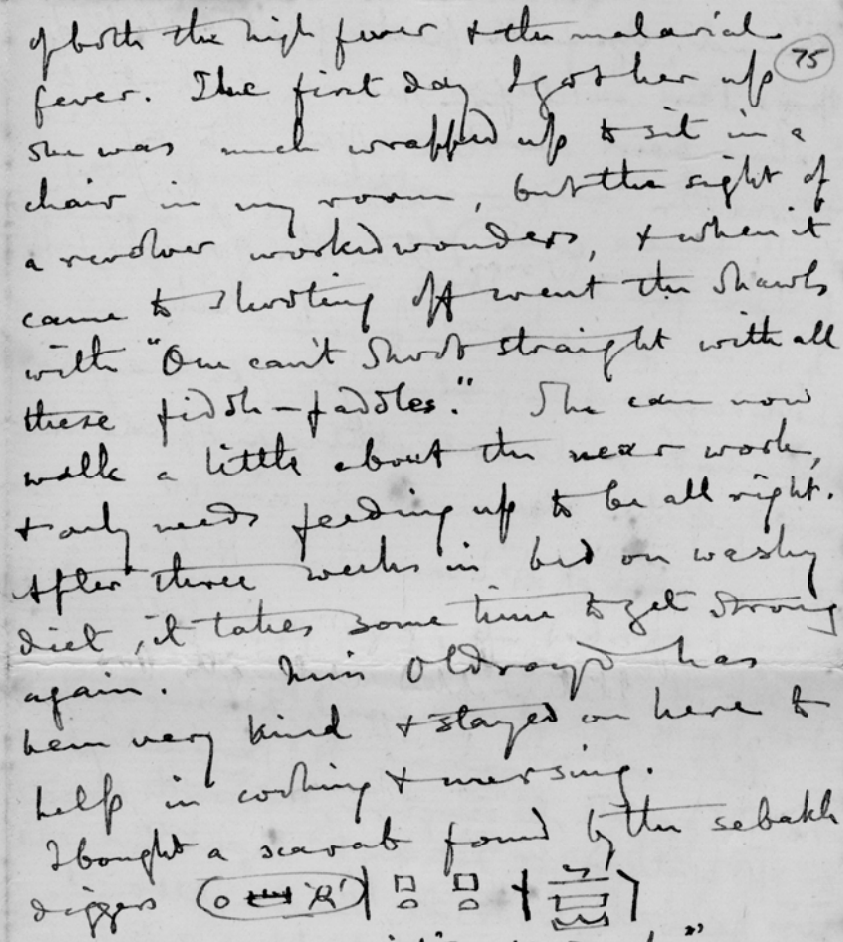 of both the high fever & the malarial
75
fever. The first day I got her up
she was much wrapped up to sit in a
chair in my room, but the sight of
a revolver worked wonders, & when it
came to shooting off went the shawls
with "One can't shoot straight with all
these fiddle-faddles." She can now
walk a little about the near work,
& only needs feeding up to be all right.
After three weeks in bed on washy
diet, it takes some time to get strong
again. Miss Oldroyd has
been very kind & stayed on here to
help in cooking & nursing.
I bought a scarab found by the sebakh
diggers